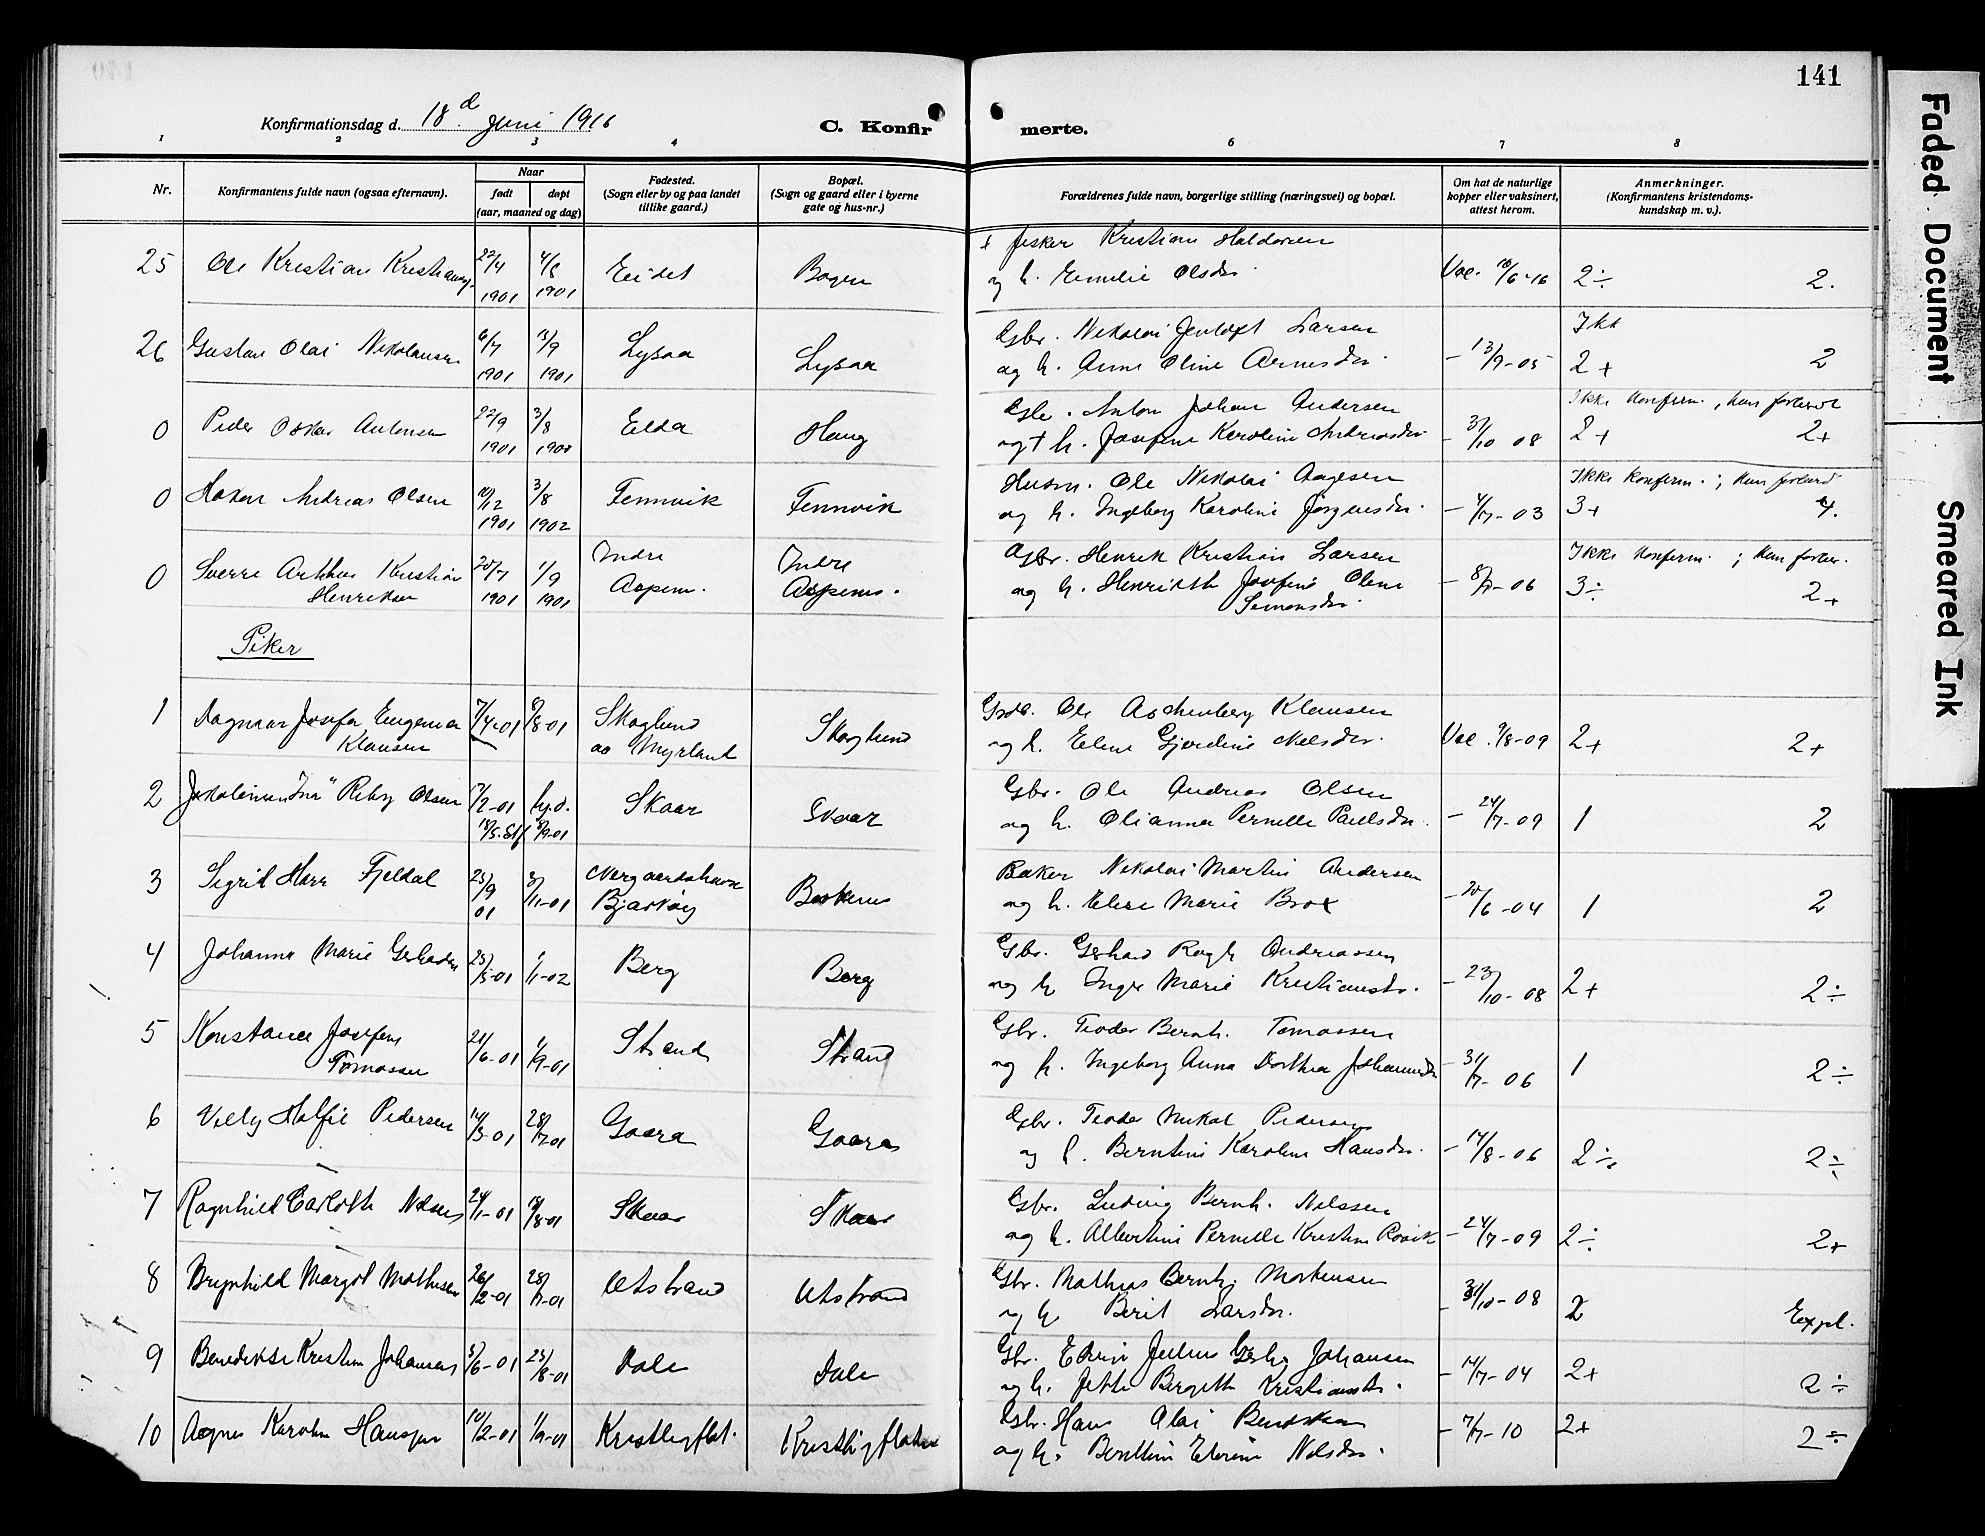 141
Konfirmationsdag d. 18d Juni 1916
C. Konfirmerte.
1 2 3 4 6 7 8
Nr.
Konfirmantens fulde navn (ogsaa efternavn).
Naar
født døpt
(aar, maaned og dag)
Fødested.
(Sogn eller by og paa landet
tillike gaard.)
Bopæl.
(Sogn og gaard eller i byerne
gate og hus-nr.)
Forældrenes fulde navn, borgerlige stilling (næringsvei) og bopæl.
Om hat de naturlige
kopper eller vaksinert,
attest herom.
Anmerkninger.
(Konfirmantens kristendoms-
kundskap m. v.).
25 Ole Kristian 22/4 1901 4/8 1901 Eidet Bogen
Fisker Kristian Haldorsen
og h. Emelie Olsdr. Vac. 10/6-16 2÷ 2.
26 Gustav Olai Nikolaisen 6/7 1901 15/9 1901 Lysaa Lysaa
Gbr. Nikolai Jentoft Larsen Ikk
og h. Anne Oline Arnesdr. - 13/9-05 2+ 2
0 Peder Oskar Antonsen 22/9 1901 3/8 Elda Haug
Gbr. Anton Johan Andersen Ikke konferm.
og + h. Josefine Karoline Andreasdr - 31/10 08 2+ 2+
0 Hakon Andreas Olsen 10/12 1901 3/8 1902 Tennvik Tennvik
Husm. Ole Nikolai Aagesen Ikke konferm.
og h. Ingeborg Karoline Jørgensdr. - 4/7-03 3+ 4.
0 Sverre Arthur Kristian
Henriksen 20/7 1901 1/9 1901 Indre
Aspenes. Indre
Aspenes.
Gbr. Henrik Kristian Larsen Ikke konferm.
og h. Henrikke Josefine Oline
Simonsdr. - 8/7-06 3÷ 2+
Piker
1 Dagmar Josefa Eugenia
Klausen 7/4-01 8/8-01 Skoglund
av Myrland Skoglund
Ole Aschenberg Klausen
og h. Eline Gjerdine Nilsdr. Vac. 9/8-09 2+ 2+
2 "Ina" Olsen 17/2-01 hj.d. 8/9-01 Skaar Skaar
Gbr. Ole Andreas Olsen
og h. Olianna Pernelle Paulsdr. - 24/7-09 1 2
3 Sigrid Harr Fjeldal 25/9 01 3/11-01
Bjarkøy
Baker Nikolai Martin Andersen
og h. Elise Marie Brox - 20/6-04 1 2
4 Johanna Marie 25/5-01 1/1-02 Berg Berg
Gbr. Gerhard Andreassen
og h. Inger Marie Kristiansdr. - 23/10-08 2+ 2÷
5 Konstance Josefine
Tomassen 21/6-01 1/9-01 Strand Strand
Gbr. Teodor Bernh. Tomassen
og h. Ingeborg Anna Dorthea - 31/7-06 1 2÷
6 Pedersen 14/5-01 28/7-01 Gaara Gaara
Gbr. Teodor Mikal Pedersen
og h. Berntine Karoline Hansdr. - 14/8-06 2÷ 2÷
7 Ragnhild Carlotte Nilsen 24/1-01 18/8-01 Skaar Skaar
Gbr. Ludvig Bernh. Nilssen
og h. Albertine Pernelle Kristine - 24/7-09 2÷ 2+
8 Brynhild Margot Mathisen 26/2-01 28/7-01 Utstrand Utstrand
Gbr. Mathias Bernh. Mortensen
og h Berit Larsdr. - 31/10-08 2 Expl.
9 Benedikte Kristine Johansen 5/6-01 25/8-01 Dale Dale
Gbr. Edvin Julius Johansen
og h. Jette Birgitte Kristiansdr. - 14/7-04 2+ 2÷
10 Agnes Karoline Hansen 10/2-01 1/9-01
Gbr. Hans Olai
og h. Nilsdr. - 7/7-10 2+ 2÷
Faded Document
Smeared Ink